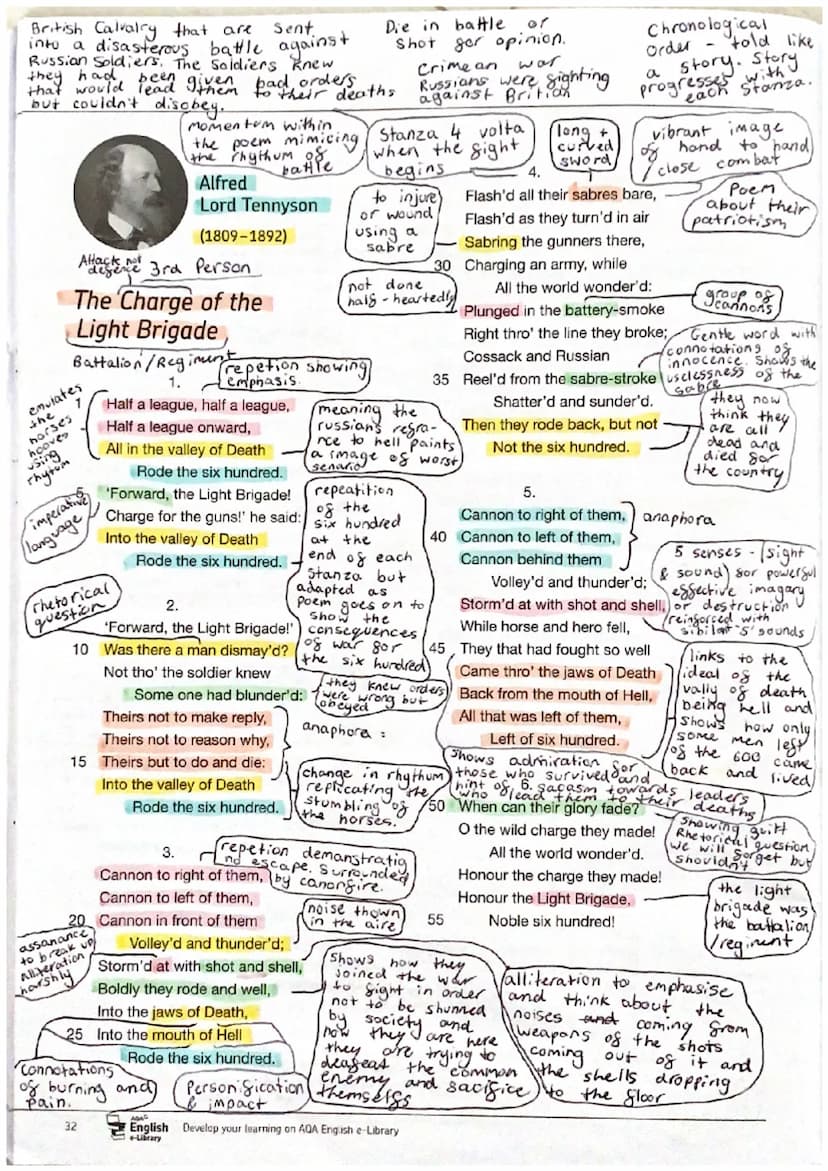 British Calvalry that are sent
into a disasterous battle against
Russian Soldiers. The Soldiers knew
they had been given bad orders
that would lead them to their deaths
but couldn't disobey.
Die in battle or
shot for opinion.
Crimean war
Russians were fighting
against British
Chronological
order - told like
a story. Story
progresses with
each stanza.
momentum within
the poem mimicing
the rhythum of
battle
Stanza 4 volta
when the fight
begins
long +
curved
sword
vibrant image
of hand to hand
/ close combat
Alfred
Lord Tennyson
(1809–1892)
Attack not
defence
3rd Person
The Charge of the
Light Brigade
Battalion/Regiment
repetion showing
emphasis.
emulates
the
horses
hooves
using
rhythum
1.
1
Half a league, half a league,
Half a league onward,
All in the valley of Death
Rode the six hundred.
5
'Forward, the Light Brigade!
Charge for the guns!' he said:
Into the valley of Death
Rode the six hundred.
meaning the
russians refra-
nce to hell paints
a image of worst
senario
imperative
language
repeatition
of the
six hundred
at the
end of each
stanza but
adapted as
poem goes on to
show the
consequences
of war for
the six hundred
rhetorical
question
2.
'Forward, the Light Brigade!'
10 Was there a man dismay'd?
Not tho' the soldier knew
Some one had blunder'd:
Theirs not to make reply,
Theirs not to reason why,
15 Theirs but to do and die:
Into the valley of Death
Rode the six hundred.
they knew orders
were wrong but
obeyed
anaphora :
change in rhythum
replicating the
stumbling of
the horses.
3.
repetion demonstratig
no escape. Surrounded
by canonfire.
Cannon to right of them,
Cannon to left of them,
20 Cannon in front of them
Volley'd and thunder'd;
Storm'd at with shot and shell,
Boldly they rode and well,
Into the jaws of Death,
25 Into the mouth of Hell
Rode the six hundred.
noise thown
in the aire
assanance
to break up
alliteration
harshly
connotations
of burning and
pain.
Personification
& impact
shows how they
joined the war
to fight in order
not to be shunned
by society and
now they are here
they are trying to
deafeat the common
enemy and sacrifice
themselfs
4.
Flash'd all their sabres bare,
Flash'd as they turn'd in air
Sabring the gunners there,
30 Charging an army, while
All the world wonder'd:
Plunged in the battery-smoke
Right thro' the line they broke;
Cossack and Russian
35 Reel'd from the sabre-stroke
Shatter'd and sunder'd.
Then they rode back, but not
Not the six hundred.
to injure
or wound
using a
sabre
not done
half-heartedly
Poem
about their
patriotism
group of
cannons
Gentle word with
connotations of
innocence. Shows the
uselessness of the
sabre
they now
think they
are all
dead and
died for
the country
5.
Cannon to right of them,
40 Cannon to left of them,
Cannon behind them
Volley'd and thunder'd;
Storm'd at with shot and shell,
While horse and hero fell,
45 They that had fought so well
Came thro' the jaws of Death
Back from the mouth of Hell,
All that was left of them,
Left of six hundred.
anaphora
5 senses - (sight
& sound) for powerful
effective imagary
or destruction
reinforced with
sibilant 's' sounds
links to the
ideal of the
vally of death
being hell and
shows how only
some men left
of the 600 came
back and lived
shows admiration for
those who survived and
hint of sacasm towards leaders
who lead them to their deaths
6.
50 When can their glory fade?
O the wild charge they made!
All the world wonder'd.
Honour the charge they made!
Honour the Light Brigade,
55 Noble six hundred!
Showing guilt
Rhetorical question
we will forget but
shouldn't
the light
brigade was
the battalion
/regiment
alliteration to emphasise
and think about the
noises and coming from
weapons of the shots
coming out of it and
the shells dropping
to the floor
32
AQA
English
e-Library
Develop your learning on AQA English e-Library